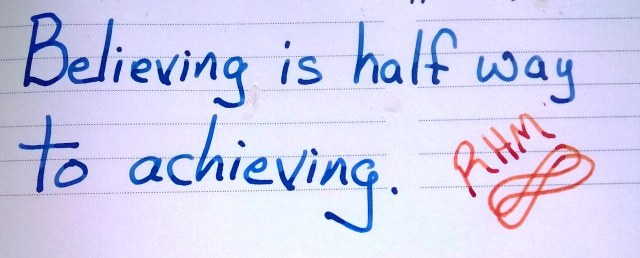 Believing is half way
to achieving.
RHM